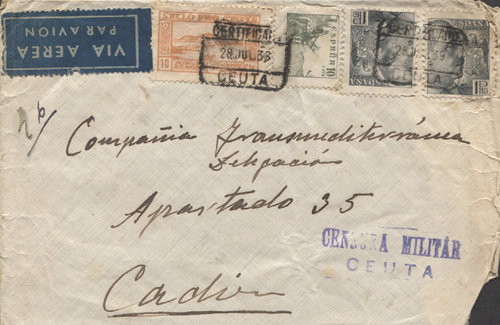 VIA AEREA
PAR AVION
10
CERTIFICADO
28 JUL 38
CEUTA
ESPAÑA
10
ESPAÑA
ESPAÑA
1 PTA
Compañia Transmediterránea
Delegacion
Apartado 35
Cadiz
CENSURA MILITAR
CEUTA